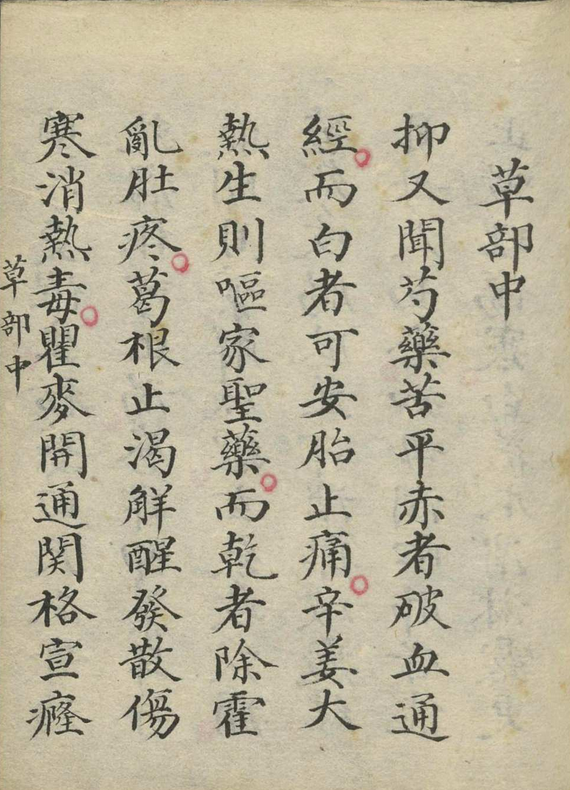 草部中
抑又聞芍藥苦平赤者破血通
經而白者可安胎止痛辛姜大
熱生則嘔家聖藥而乾者除霍
亂肚疼葛根止渴解醒發散傷
寒消熱毒瞿麥開通関格宣癃
草部中